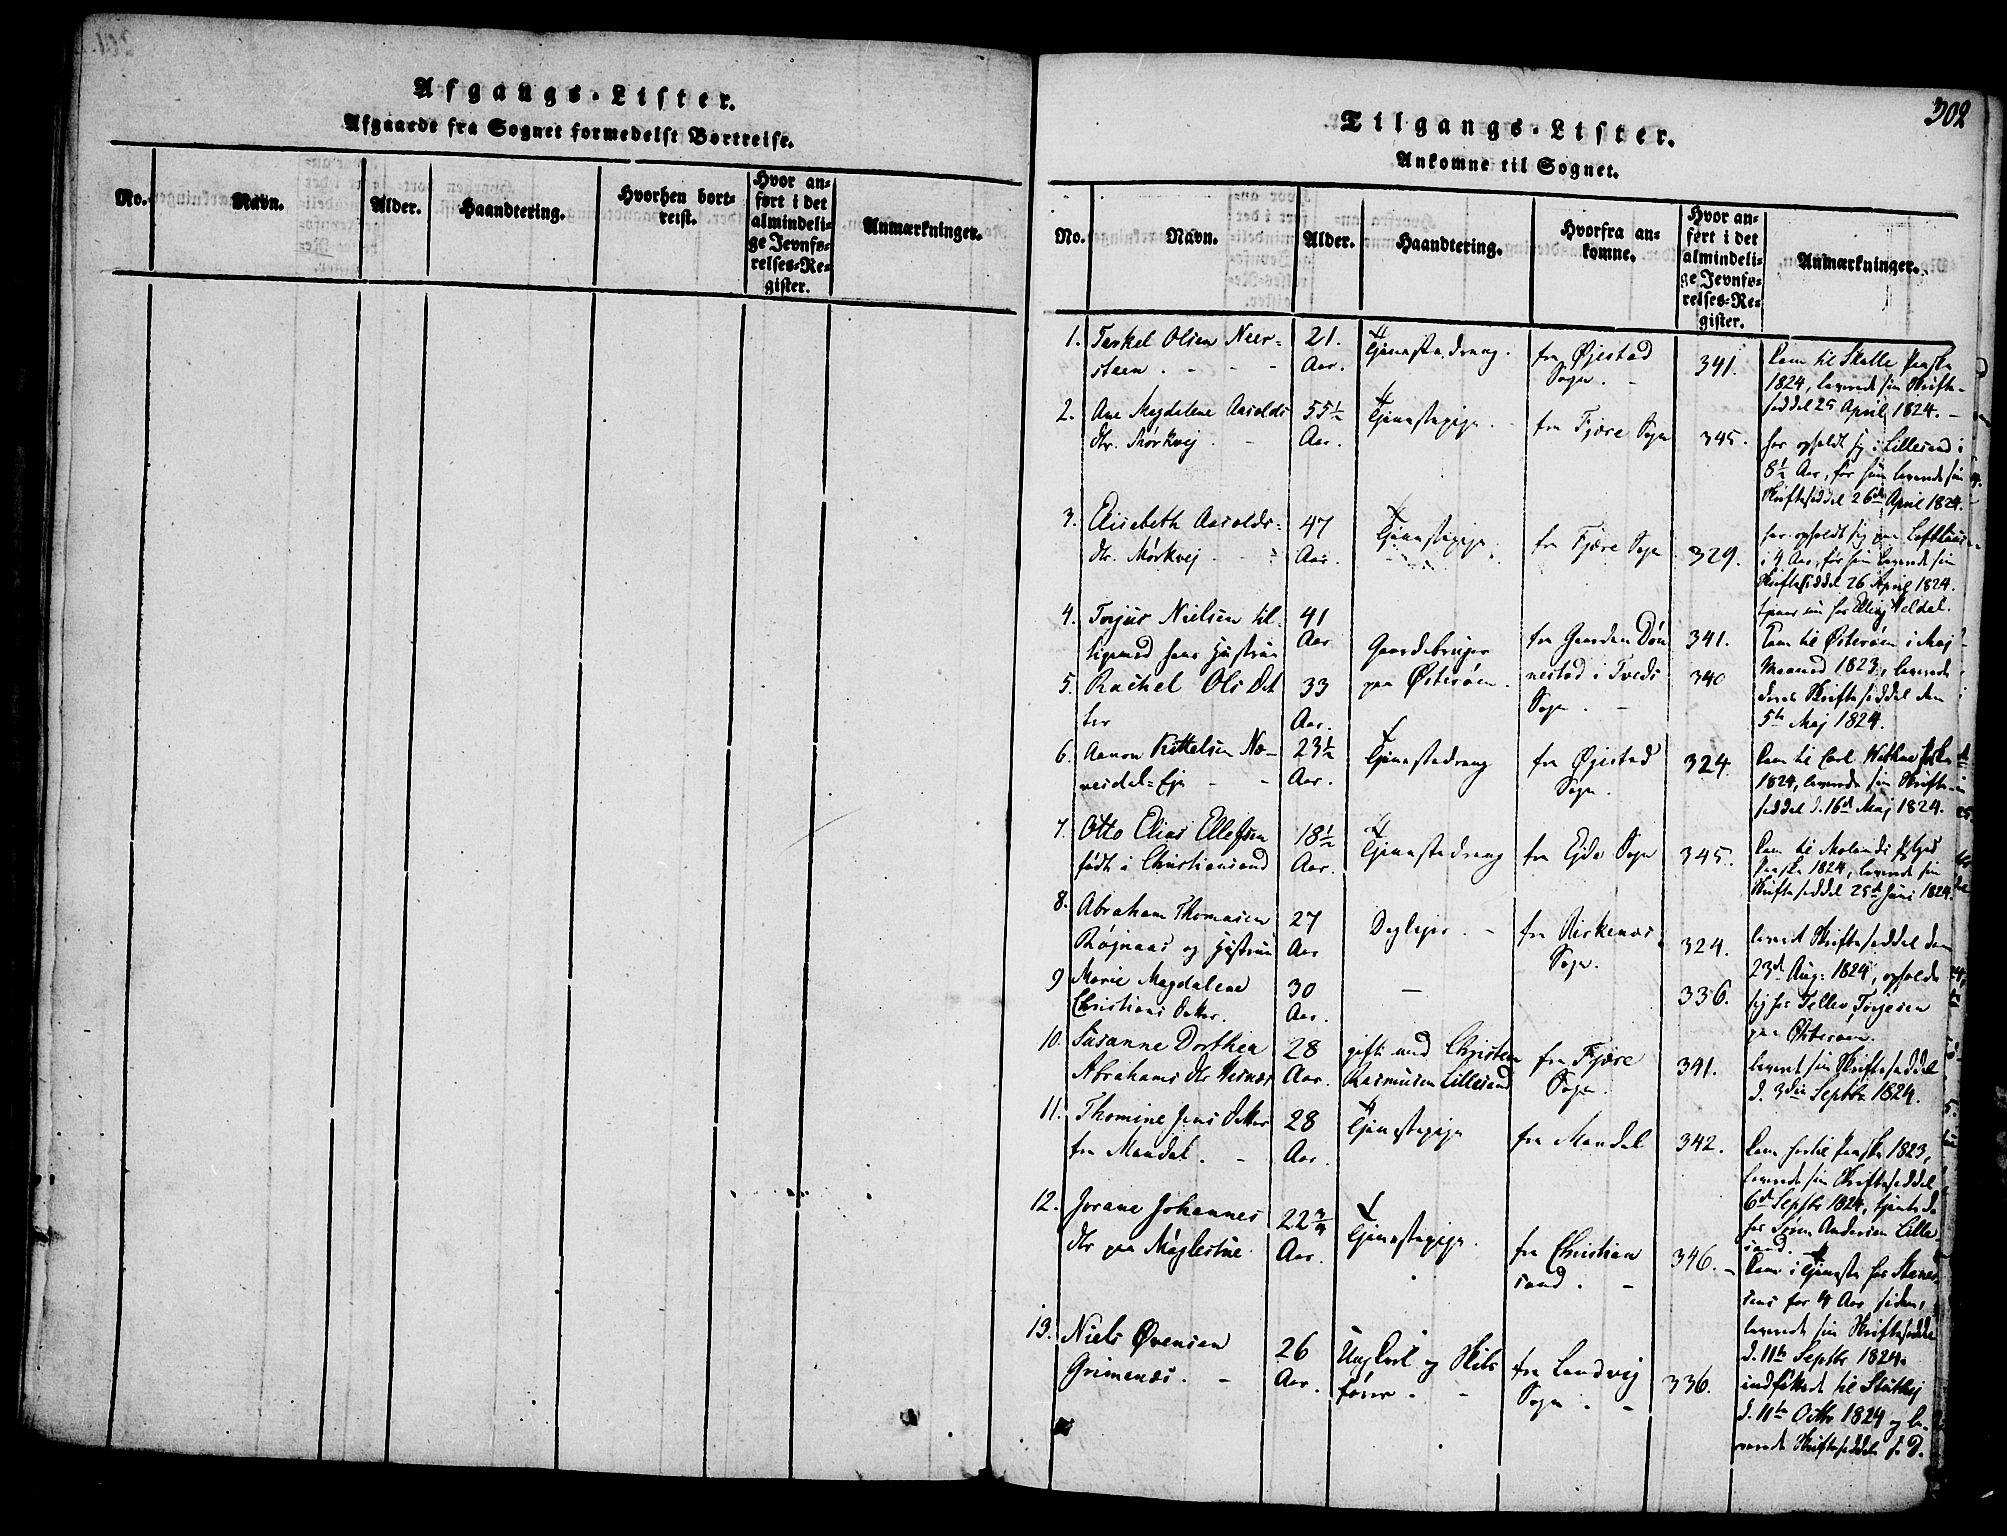 Afgangs-Lister.
Afgaaede fra Sognet formedelst Bortreise.
No.
Navn.
Alder.
Haandtering.
Hvorhen bort-
reist.
Hvor an-
ført i det
almindeli-
ge Jevnfø-
relses-Re-
gister.
Anmærkninger.
302
Tilgangs-Lister.
Ankomne til Sognet.
No.
Navn.
Alder.
Haandtering.
Hvorfra an-
komne.
Hvor an-
ført i det
almindeli-
ge Jevnfø-
relses-Re-
gister.
Anmærkninger.
1. Terkel Olsen Neer-
steen
21.
Aar.
Tjenestedreng.
fra Øjestad
Sogn.
341.
Kom til Skalle Paaske
1824, leverede sin Skrifte-
seddel 25 April 1824.
2. Ane Magdalene Aasolds
dtr. Mørkvej
55½
Aar.
Tjenestepige
fra Fjære Sogn
345.
har opholdt sig i Lillesand i
8½ Aar, før hun leverede sin
Skrifteseddel 26de April 1824.
3. Elisabeth Aasolds-
dtr. Mørkvej
47
Aar.
Tjenestepige
fra Fjære Sogn
329.
har opholdt sig paa
i 4 Aar, før hun leverede sin
Skrifteseddel 26 April 1824.
tjener nu hos Elling Heldal.
4. Torjus Nielsen til-
ligemed hans Hustrue
41
Aar
Gaardebruger
paa Østerøen.
fra Gaarden Døn
nestad i Tveds
Sogn.
341.
Kom til Østerøen i Maj
Maaned 1823, leverede
deres Skrifteseddel den
5te Maj 1824.
5. Rachel Ols Dat
ter
33
Aar.
340
6. Aanon Kittelsen Næ-
vesdal-Eje
23½
Aar.
Tjenestedreng
fra Øjestad
Sogn.
324.
Kom til Carl
1824, leverede sin Skrifte-
seddel d. 16de Maj 1824.
7. Otto Elias Ellefsen
født i Christiansand
18½
Aar.
Tjenestedreng
fra Ejde Sogn
345.
Kom til Molands
Paaske 1824, leverede sin
Skrifteseddel 25de Juni 1824
8. Abraham Thomasen
Røjnaas og Hustrue
27
Aar
Daglejer.
fra Birkenæs
Sogn.
324.
leveret Skrifteseddel den
23de Aug: 1824, opholde
sig hos Tellev Torjesen
paa Østerøen.
9 Marie Magdalene
Christians Datter.
30
Aar.
336.
10. Susanne Dorthea
Abrahams dtr Vesnæs
28
Aar.
gift med Christen
Rasmussen Lillesand
fra Fjære
Sogn.
341.
leveret sin Skrifteseddel
d. 3die Septbr 1824.
11. Thomine Jens Datter
fra Mandal.
28
Aar.
Tjenestepige
fra Mandal
342.
Kom hertil Paaske 1823,
leverede sin Skrifteseddel
6de Septbr 1824, tjente da
hos Søren Andersen Lille-
sand.
12. Jorane Johannes
dtr paa Møglestue
22¾
Aar.
Tjenestepige.
fra Christian
sand.
346.
Kom i Tjeneste hos
for 4 Aar siden,
leverede sin Skrifteseddel
d. 11te Septbr 1824.
13. Niels Øvensen
Grimenæs.
26
Aar.
Ungkarl og Skibs
fører.
fra Landvig
Sogn.
336.
indflyttede til
d. 11te Octbr 1824 og le-
verede Skrifteseddel s. D.